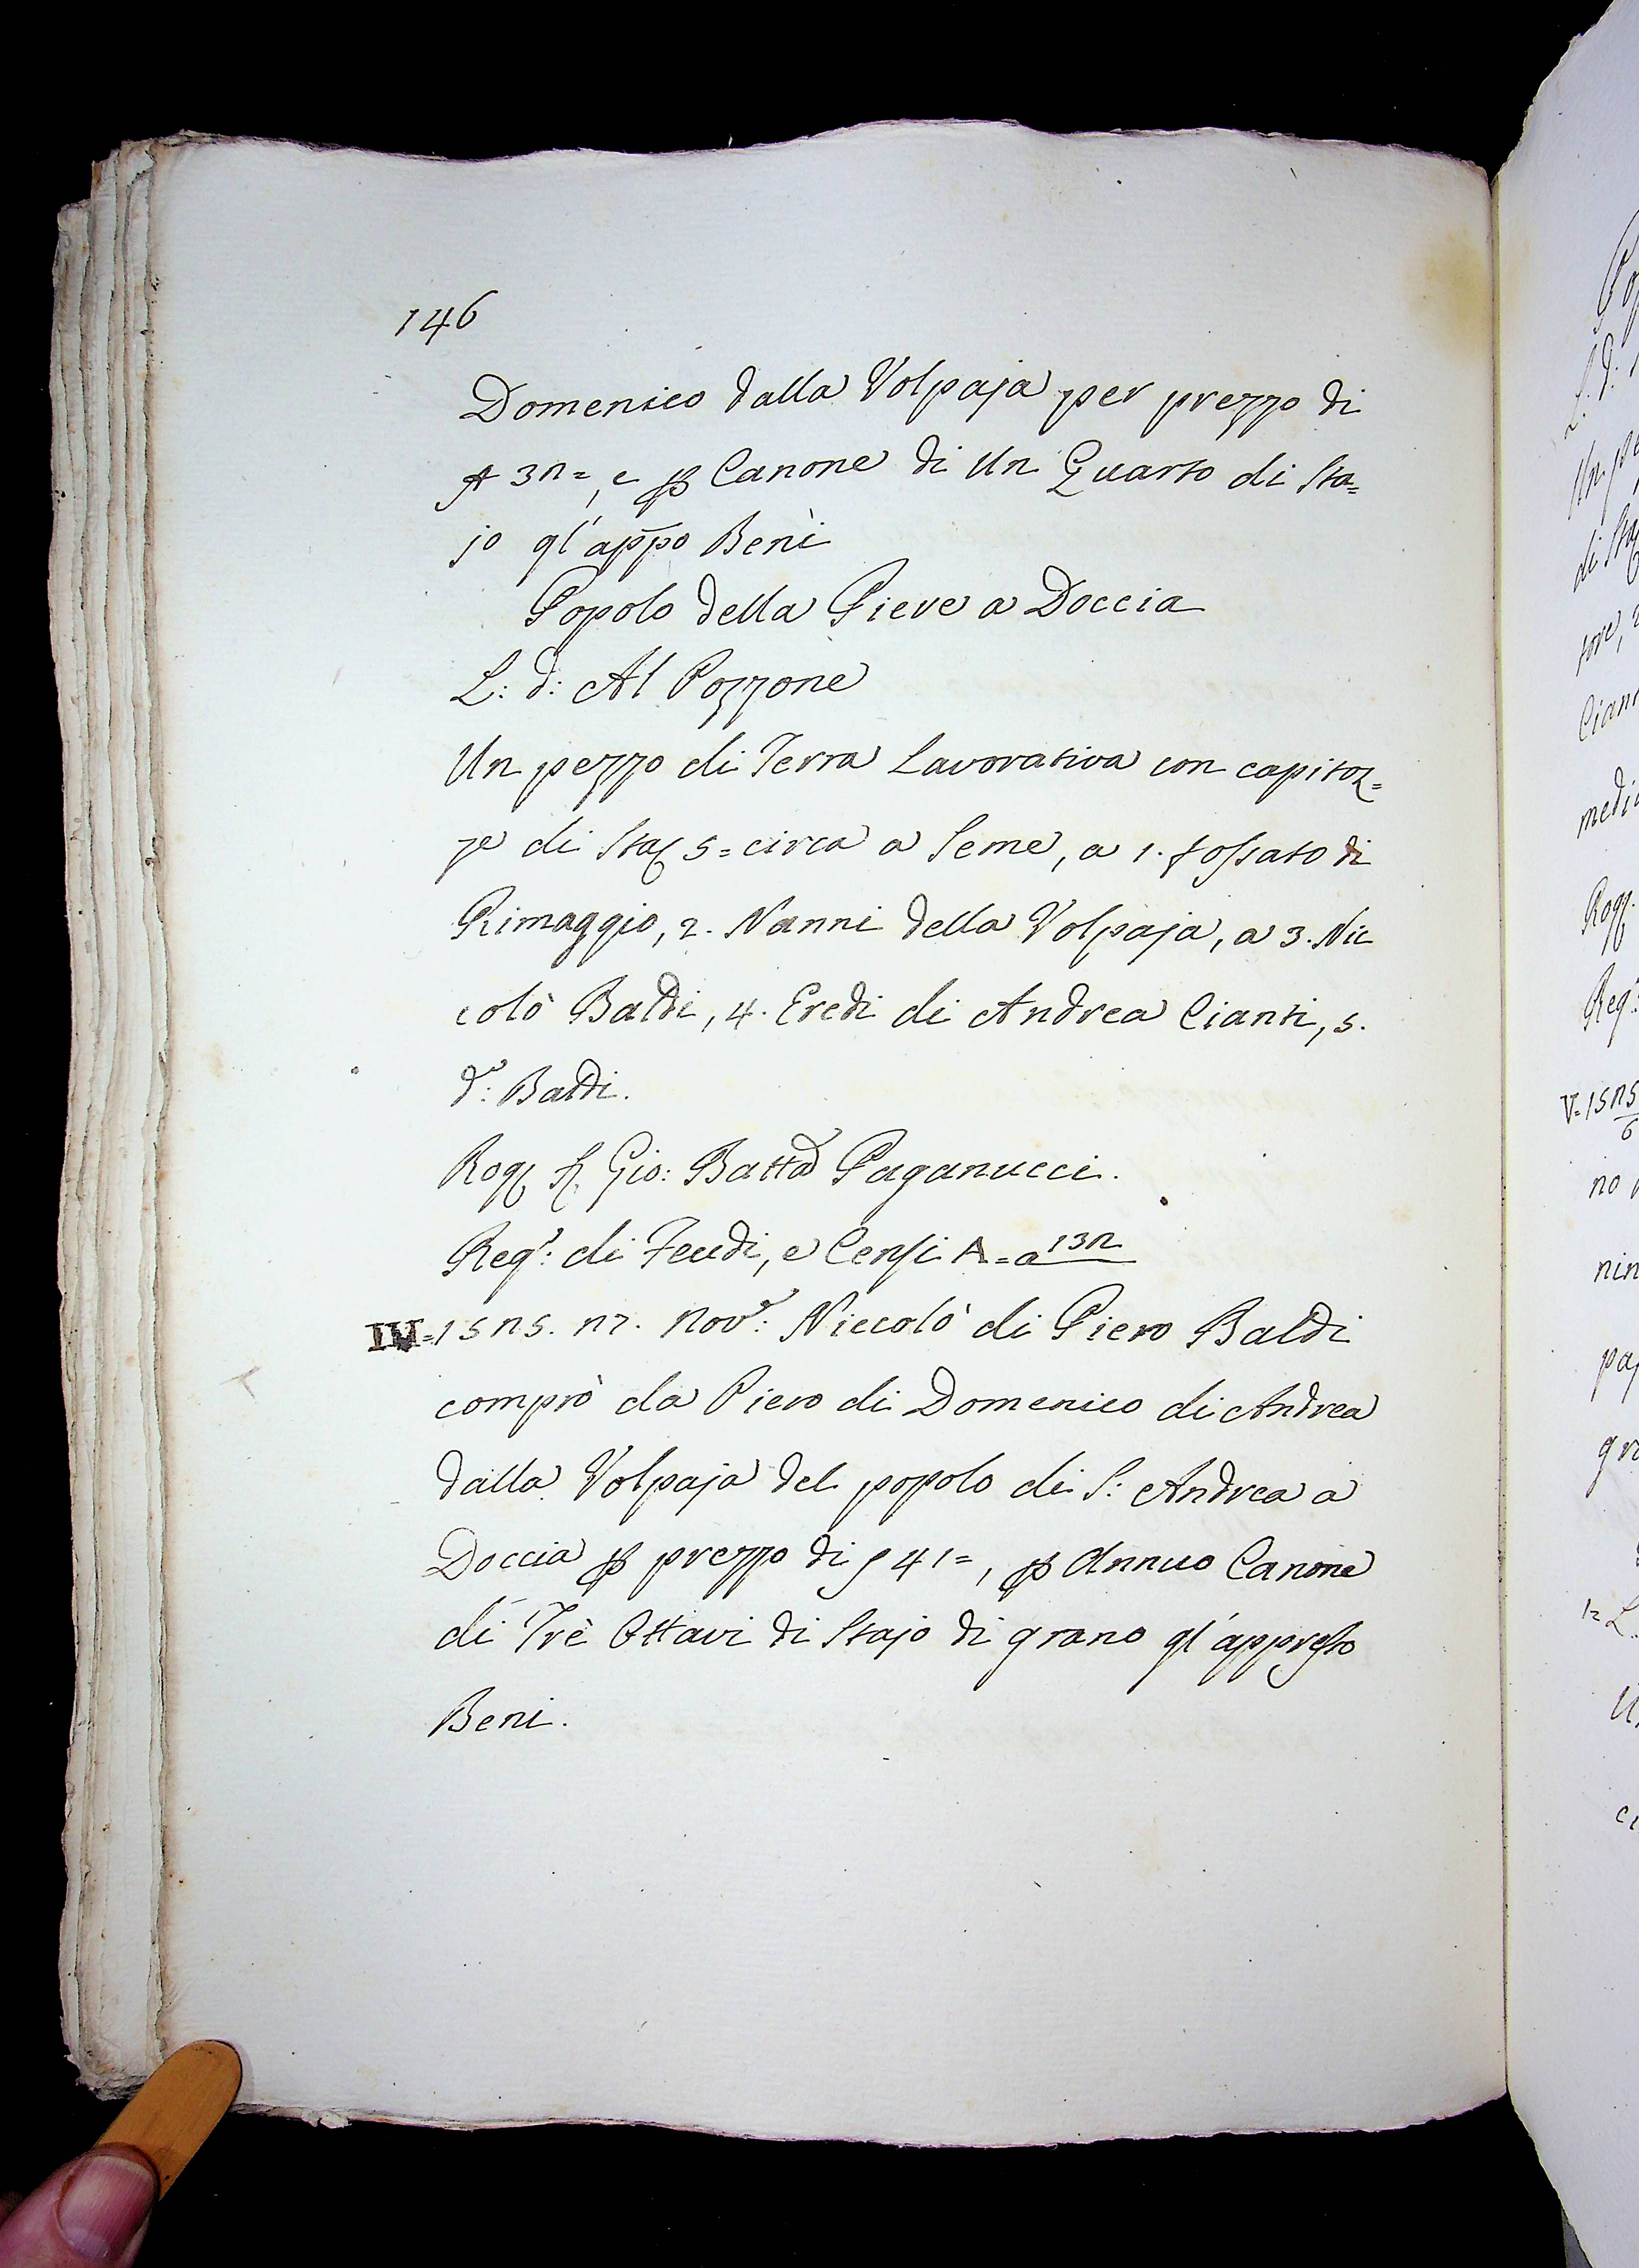 146
Domenico dalla Volpaja per prezzo di
32=, e p Canone di Un Quarto di Sta=
jo gl'appo Beni
Popolo della Pieve a Doccia
L: d: Al Pozzone
Un pezzo di Terra Lavorativa con capitoz=
ze di Sta 5= circa a Seme, a 1. fossato di
Rimaggio, 2. Nanni della Volpaja, a 3. Nic
colò Baldi, 4. Eredi di Andrea Cianti, 5.
do: Baldi.
Rog Gio: Batta Paganucci.
Rego: di Feudi, e Censi A=a 132
IV=1525. 27. Nove: Niccolò di Piero Baldi
comprò da Piero di Domenico di Andrea
dalla Volpaja del popolo di S: Andrea a
Doccia p prezzo di 41=, p Annuo Canone
di Trè Ottavi di Stajo di grano gl'appresso
Beni.